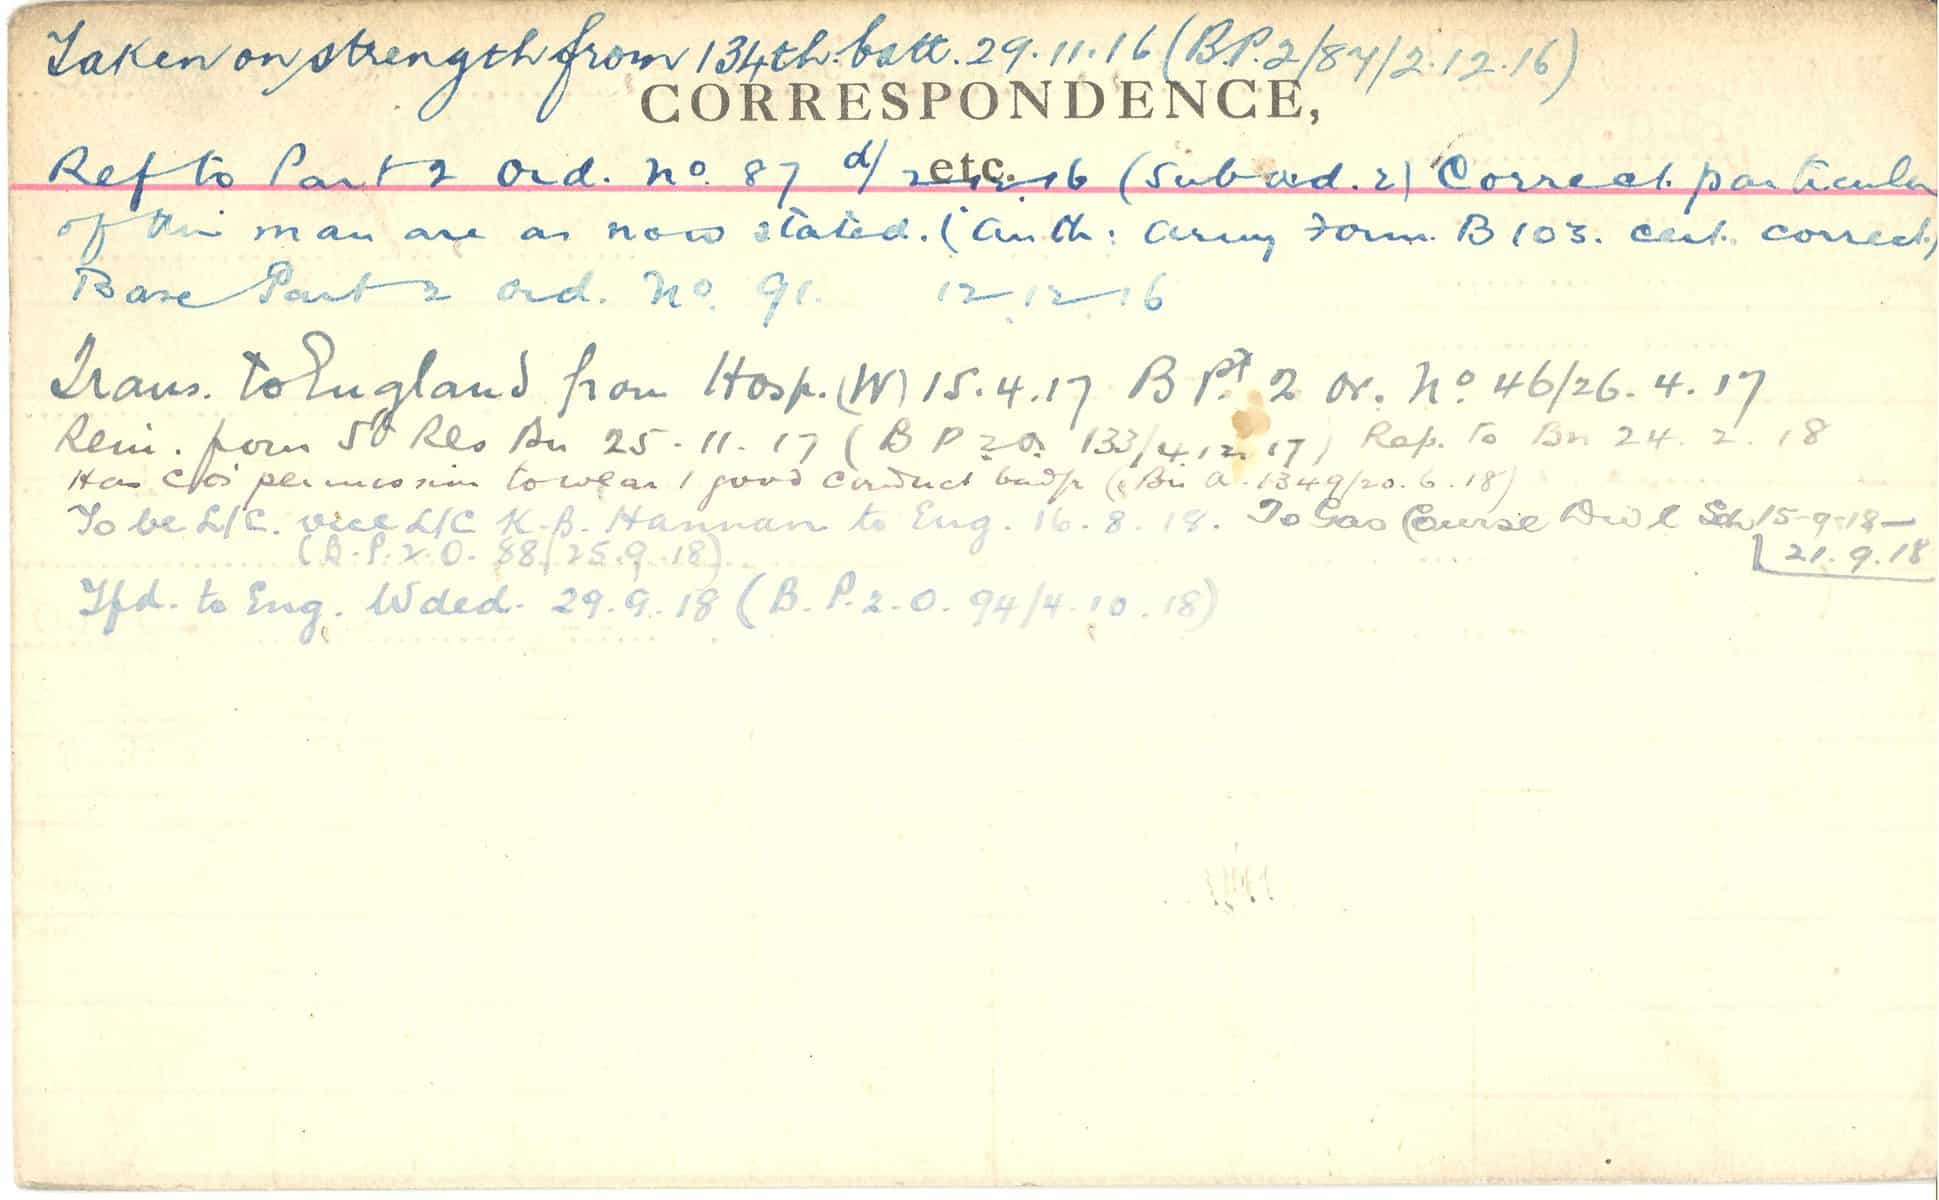 Taken on strength from 134th. batt. 29.11.16 (B.P.2/87/2.12.16)
CORRESPONDENCE,
etc.
Ref to Part 2 Ord. No. 87 d/ 2-12-16 (Sub ord. 2) Correct particular
of this man are as now stated. (Auth: Army Form. B 103. cert. correct.)
Base Part 2 Ord. No. 91. 12-12-16
Trans. to England from Hosp. (W) 15.4.17 B Pt. 2 Or. No. 46/26.4.17
Rein. from 5th Res Bn 25-11-17 (B P 2 O. 133/4.12.17) Rep. to Bn 24.2.18
Has C/O's permission to wear 1 good conduct badge (Bn O. 1349/20.6.18)
To be L/C. vice L/C K.B. Hannan to Eng. 16.8.18. To Gas Course Div'l Sch 15-9-18-
21.9.18
(B.P.2.O. 88/25.9.18)
Tfd. to Eng. Wded. 29.9.18 (B.P.2.O. 94/4.10.18)